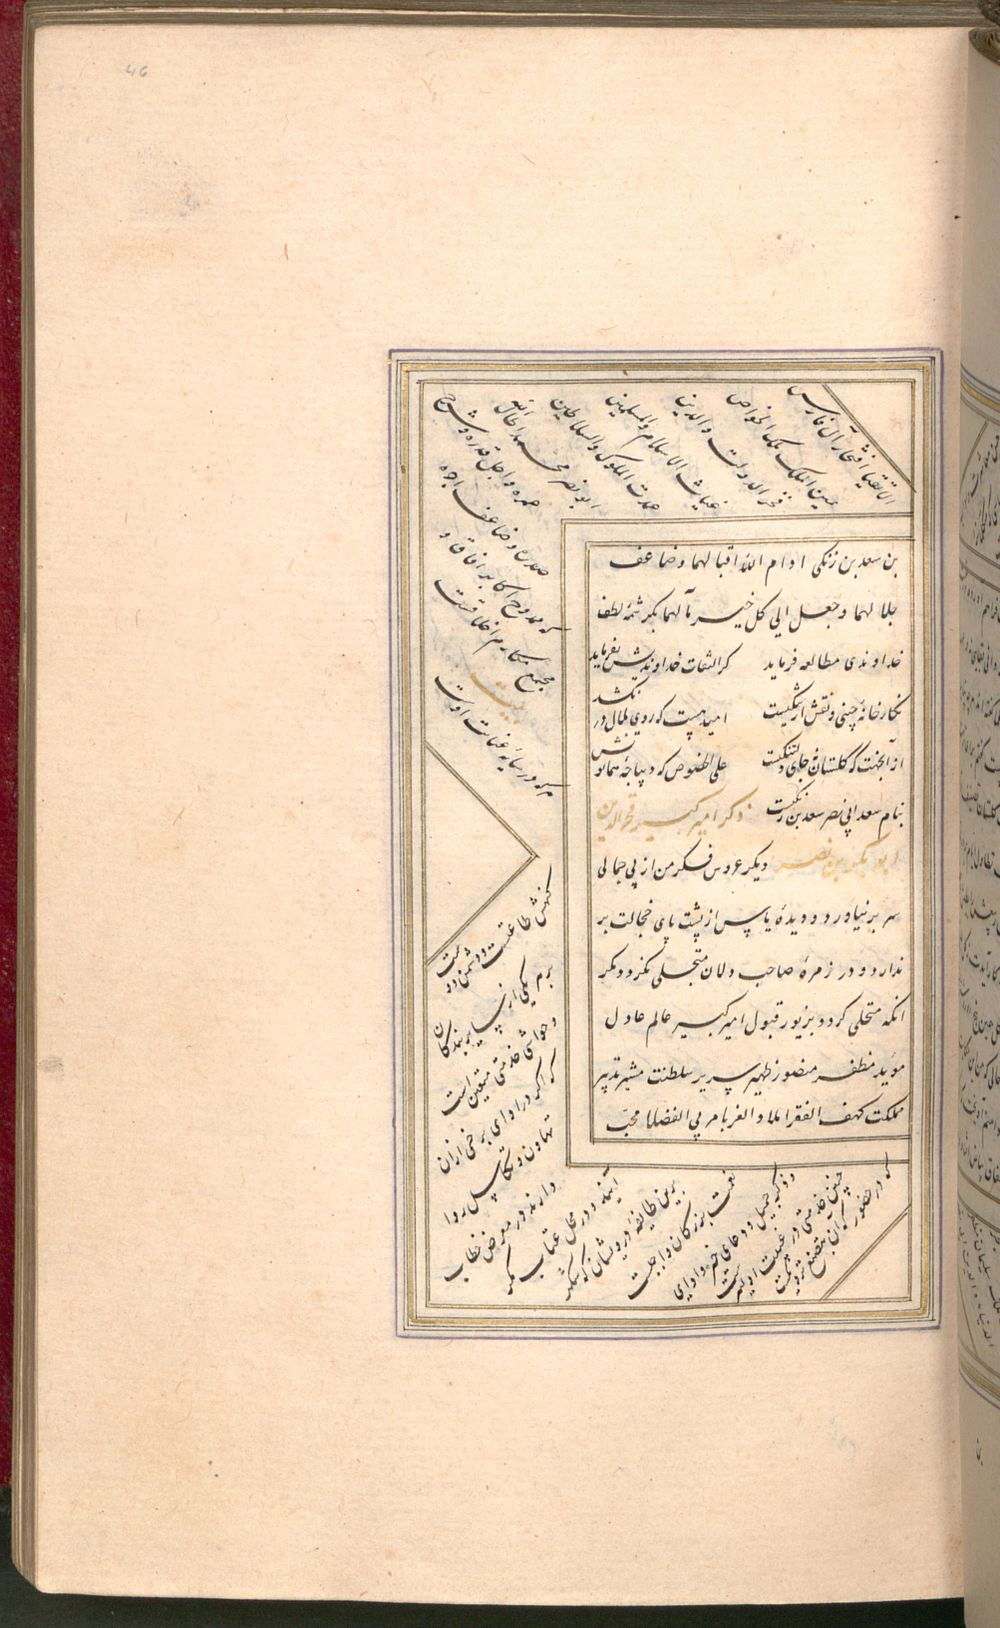 46
بن سعد بن زنگی ادام الله اقبالهما وضاعف
جلالهما وجعل الی کل خیر مآلهما بکرشمه لطف
خداوندی مطالعه فرماید کر التفات خداوندیش بفرماید
نکارخانه چینی و نقش ارتنکیست امید هست که روی ملال درنکشد
از آنجهت که کلستان نه جای دلتنکیست علی الخصوص که دیباجه همایونش
بنام سعد ابی نصر سعد بن زنکیست ذکر امیر کبیر فخرالدین
ابو بکر بن نصر دیکر عروس فکر من از بی جمالی
سر برنیاورد و دیدهٔ یاس از پشت پای خجالت بر
ندارد و در زمرهٔ صاحب دلان متجلی نکردد مکر
انکه متحلی کردد بزیور قبول امیر کبیر عالم عادل
موید مظفر منصور ظهیر سریر سلطنت مشیر تدبیر
مملکت کهف الفقرا ملاد الغربا مربی الفضلا محب
الاتقیا افتخار آل فارس
یمین الملک ملک الخواص
فخر الدولت والدین
غیاث الاسلام والمسلمین
عمدت الملوک والسلاطین
ابو نصر محمد اطال الله
عمره واجل قدره وشرح
صدره وضاعف اجره
که ممدوح اکابر افاقاو
مجمع مکارم اخلاقست
بیت
هرکه در سایه عنایت اوست
کنهش طاعتست و دشمن دوست
برهر یکی از سایر بندکان
و حواشی خدمتی متعین است
که اکر در ادای برخی ازان
تهاون و تکاسل روا
دارند در معرض خطاب
آیند و در محل عتاب مکر
برین طایفه درویشان که شکر
نعمت بزرکان واجبست
و ذکر جمیل و دعای خیر و ادای
چنین خدمتی در غیبت اولیتر است
که در حضور که آن بتصنع نزدیکست